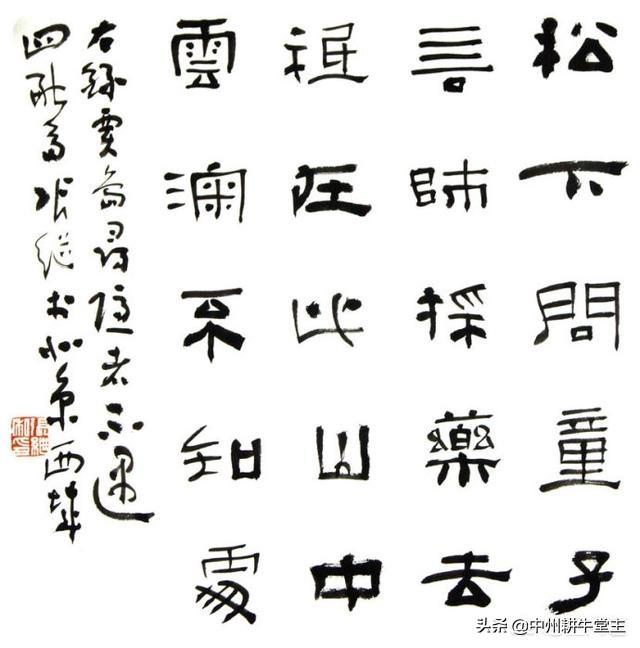 松下問童子
言師採藥去
祗在此山中
雲深不知處
右錄賈島尋隱者不遇
四融齋張繼於北京西城
头条 @中州耕牛堂主